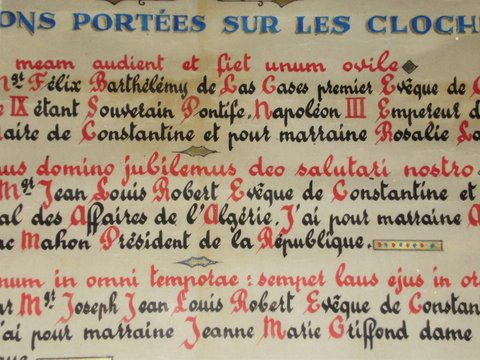 ONS PORTÉES SUR LES CLOCH
meam audient et fiet unum ovile
Mgr Félix Barthélémy de Las Cases premier Evêque de C
e IX étant Souverain Pontife, Napoléon III Empereur d
aire de Constantine et pour marraine Rosalie La
us domino jubilemus deo salutari nostro
Mgt Jean Louis Robert Evêque de Constantine et
al des Affaires de l'Algérie, J'ai pour marraine
ac Mahon Président de la République.
num in omni temporae : semper laus ejus in or
ar Mgt Joseph Jean Louis Robert Evêque de Constan
'ai pour marraine Jeanne Marie Griffond dame
que